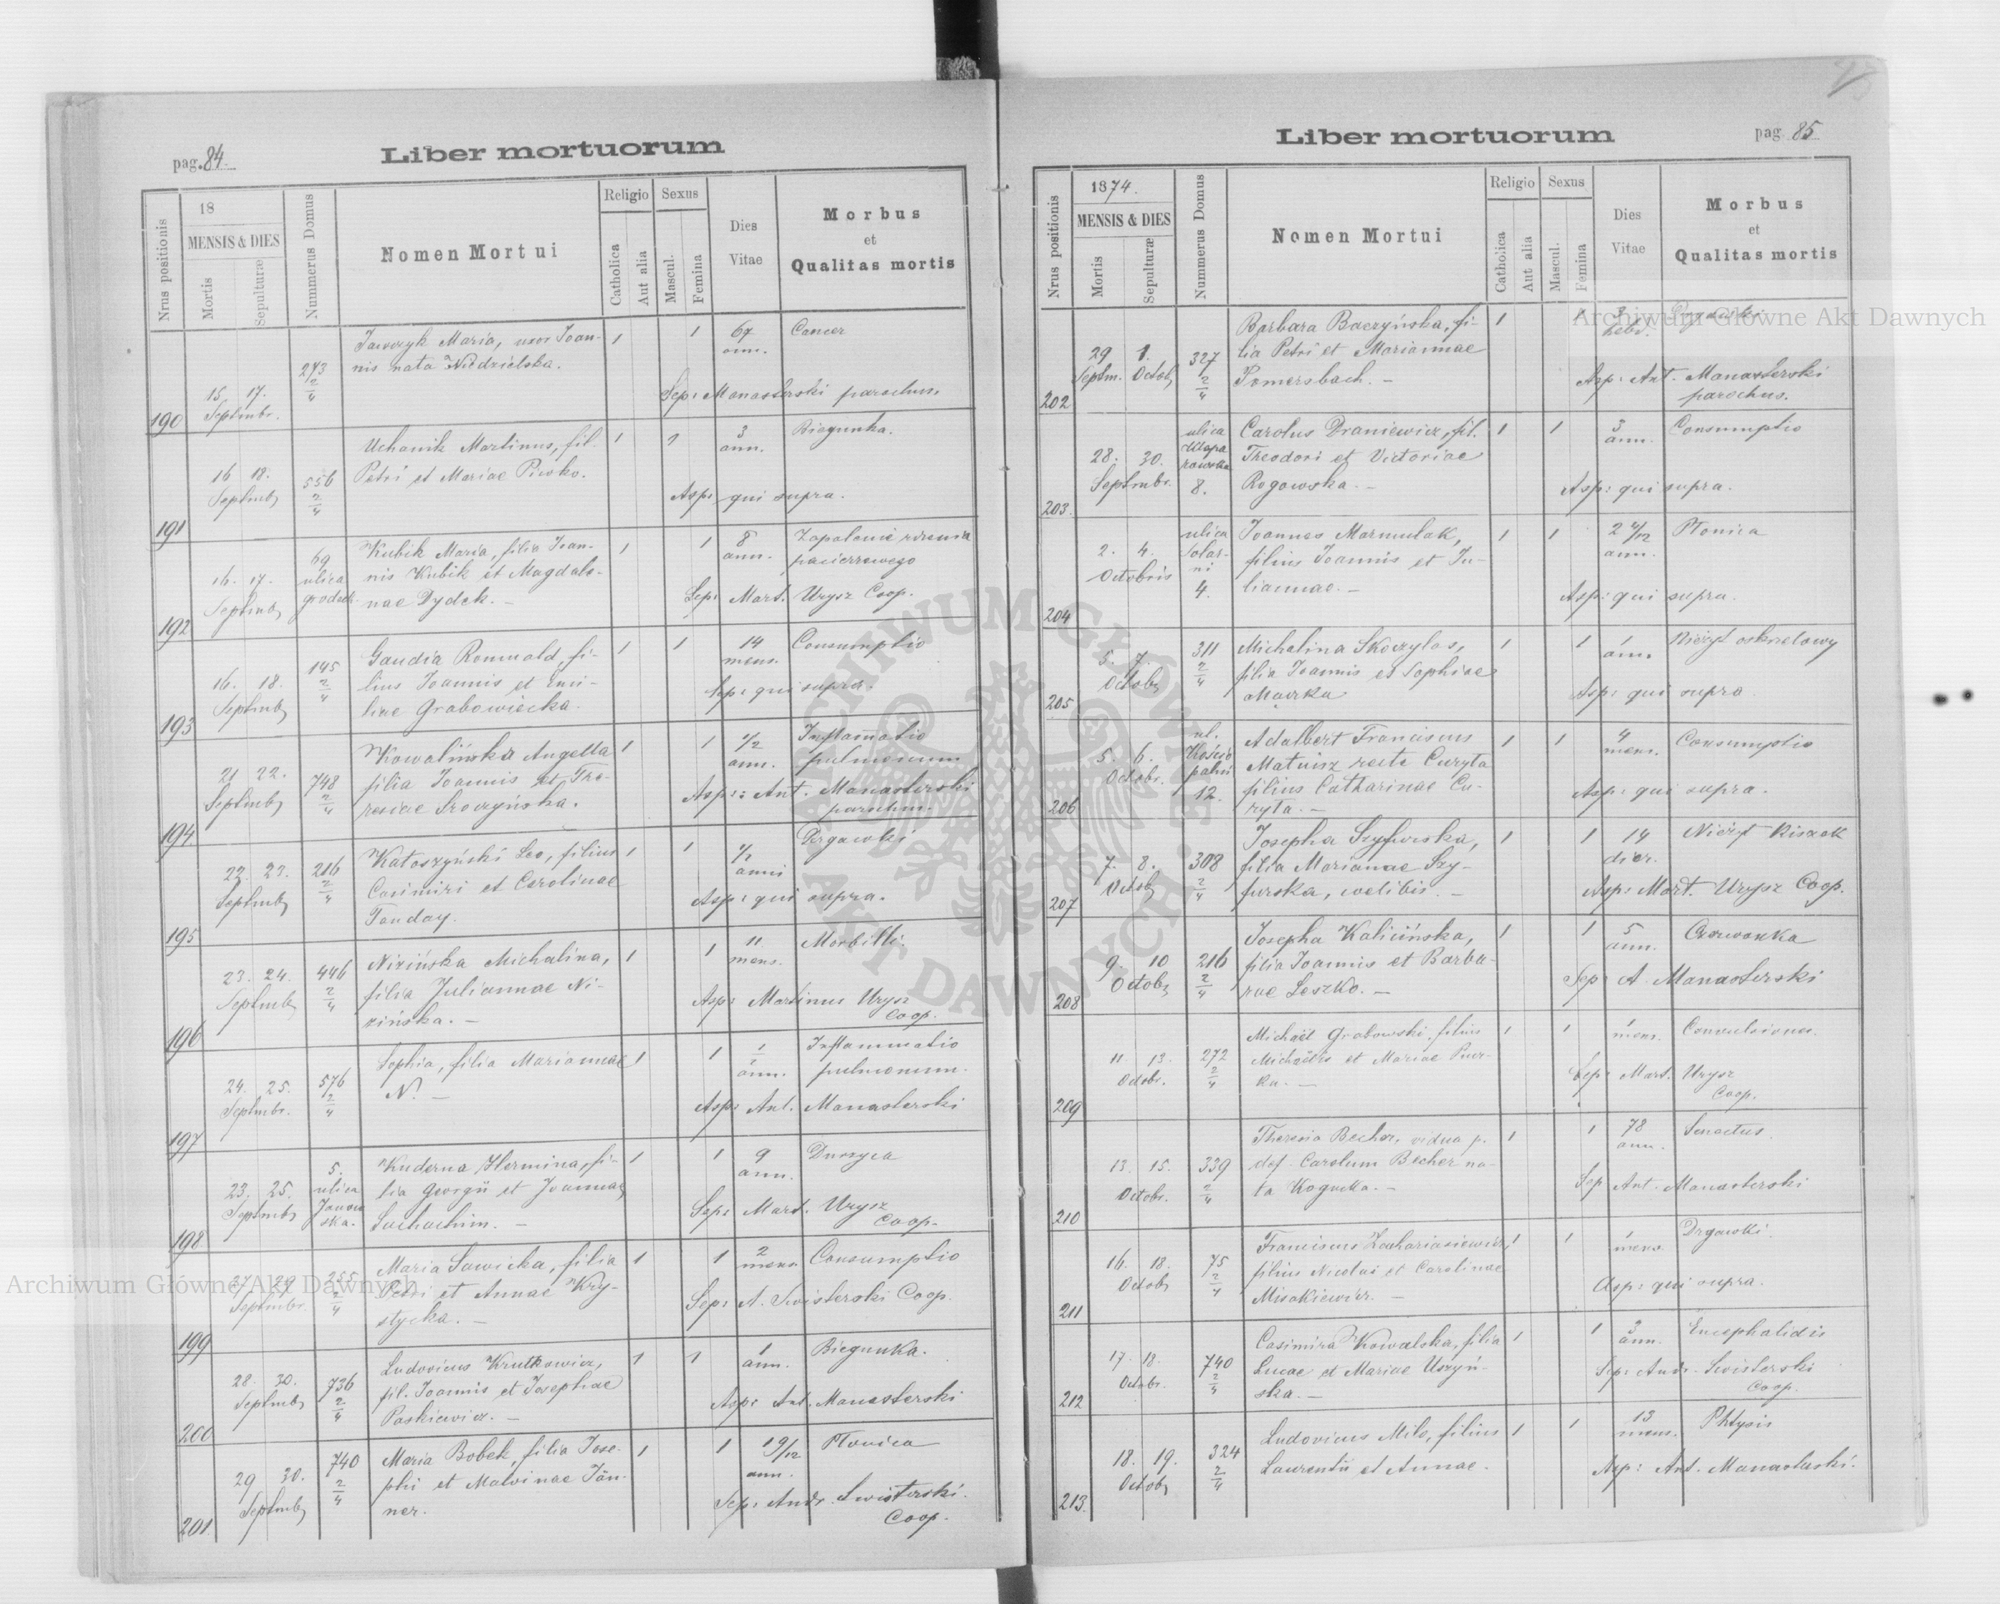 pag. 84
Liber mortuorum
Nrus positionis
18
MENSIS & DIES
Mortis
Sepulturæ
Nummerus Domus
Nomen Mortui
Religio
Catholica
Aut alia
Sexus
Mascul.
Femina
Dies
Vitae
Morbus
et
Qualitas mortis
190
15 17.
Septembr.
273
2/4
Maria, uxor Joan-
nis nata Niedzielska.
1 1
67
ann.
Cancer
Sep: Monasterski parochus.
191
16 18.
Septemb
556
2/4
Uchanik Martinus, fil.
Petri et Mariae Piwko.
1 1
3
ann.
Biegunka.
Asp: qui supra.
192
16. 17.
Septemb
69
ulica
grodeck.
Kubik Maria, filia Joan-
nis Kubik et Magdale-
nae Dydek. -
1 1
8
ann.
Zapalenie rdzenia
pacierzowego
Sep: Mart. Urysz Coop.
193
16. 18.
Septemb
145
2/4
Gaudia Romuald, fi-
lius Joannis et Emi-
liae Grabowiecka.
1 1
14
mens.
Consumptio
Sep: qui supra.
194
21 22.
Septemb
748
2/4
Kowalińska Angella
filia Joannis et The-
resiae Sroczyńska.
1 1
1/2
ann.
Inflamatio
pulmonum
Asp: Ant. Monasterski
parochus.
195
22. 22.
Septemb
216
2/4
Kałaszyński Leo, filius
Casimiri et Carolinae
Tanday.
1 1
1/2
anni
Drgawki
Asp: qui supra.
196
23. 24.
Septemb
446
2/4
Nizińska Michalina,
filia Juliannae Ni-
zińska. -
1 1
11
mens.
Morbilli.
Asp: Martinus Urysz
Coop.
197
24. 25.
Septembr.
576
2/4
Sophia, filia Mariannae
N. -
1 1
1
ann.
Inflammatio
pulmonum.
Asp: Ant. Monasterski
198
23. 25.
Septemb
5.
ulica
Janow-
ska.
Kuderna Hermina, fi-
lia Georgii et Joannae
Suchachim. -
1 1
9
ann.
Duszyca
Sep: Mart. Urysz
Coop.
199
27. 29
Septembr.
255
2/4
Maria Sawicka, filia
Petri et Annae Kry-
stycka. -
1 1
2
mens
Consumptio
Sep: A. Swisterski Coop.
200
28. 30.
Septemb
736
2/4
Ludovicus Krutkowicz,
fil. Joannis et Josephae
Paskiewicz. -
1 1
1
ann.
Biegunka.
Asp: Ant. Monasterski
201.
29 30.
Septemb
740
2/4
Maria Bobek, filia Jose-
phi et Malvinae Jän-
ner.
1 1
1 9/12
ann.
Płonica
Sep: Andr. Swisterski.
Coop.
Liber mortuorum
pag. 85
Nrus positionis
1874.
MENSIS & DIES
Mortis
Sepulturæ
Nummerus Domus
Nomen Mortui
Religio
Catholica
Aut alia
Sexus
Mascul.
Femina
Dies
Vitae
Morbus
et
Qualitas mortis
202
29 1.
Septm. Octob
327
2/4
Barbara Baczyńska, fi-
lia Petri et Mariannae
Pomersbach. -
1 1
3
hebd.
Drgawki
Asp: Ant. Monasterski
parochus.
203.
28. 30.
Septembr.
ulica
8.
Carolus Draniewicz, fil.
Theodori et Victoriae
Rogowska. -
1 1
3
ann.
Consumptio
Asp: qui supra.
204
2. 4.
Octobris
ulica
Solar-
ni
4.
Joannes Marmulak,
filius Joannis et Ju-
liannae. -
1 1
ann.
Płonica
Asp: qui supra.
205
5. 7.
Octob
311
2/4
Michalina Skoczylas,
filia Joannis et Sophiae
Maczka
1 1
1
ann.
Nieżyt oskrzelowy
Asp: qui supra
206
5. 6.
Octobr.
ul.
12.
Adalbert Franciscus
Matusz recte Curyta
filius Catharinae Cu-
ryta. -
1 1
4
mens.
Consumptio
Asp: qui supra.
207
7. 8.
Octob
308
2/4
Josepha Szyfurska,
filia Mariannae Szy-
furska, coelibis. -
1 1
14
dier.
Nieżyt kiszek
Asp: Mart. Urysz Coop.
208
9. 10
Octobr
216
2/4
Josepha Kalicińska,
filia Joannis et Barba-
rae Leszko. -
1 1
5
ann.
Czerwonka
Sep: A. Monasterski
209
11 13.
Octobr.
272
2/4
Michaël Grabowski, filius
Michaëlis et Mariae
ka. -
1 1
1
mens.
Convulsiones.
Sep: Mart. Urysz
Coop.
210
13. 15.
Octobr.
339
2/4
Theresia Becher, vidua p.
def. Carolum Becher na-
ta -
1 1
78
ann.
Senectus.
Sep: Ant. Monasterski
211
16. 18.
Octob
75
2/4
Franciscus Zachariasiewicz,
filius Nicolai et Carolinae
Misakiewicz. -
1 1
1
mens.
Drgawki.
Asp: qui supra.
212
17. 18.
Octobr.
740
2/4
Casimira Kowalska, filia
Lucae et Mariae Uszyń-
ska. -
1 1
3
ann.
Encephalidis
Sep: Andr. Swisterski
Coop.
213.
18. 19.
Octob
324
2/4
Ludovicus Milo, filius
Laurentii et Annae.
1 1
13
mens.
Phtysis
Asp: Ant. Monasterski.
Archiwum Główne Akt Dawnych
Archiwum Główne Akt Dawnych
ARCHIWUM GŁÓWNE
AKT DAWNYCH